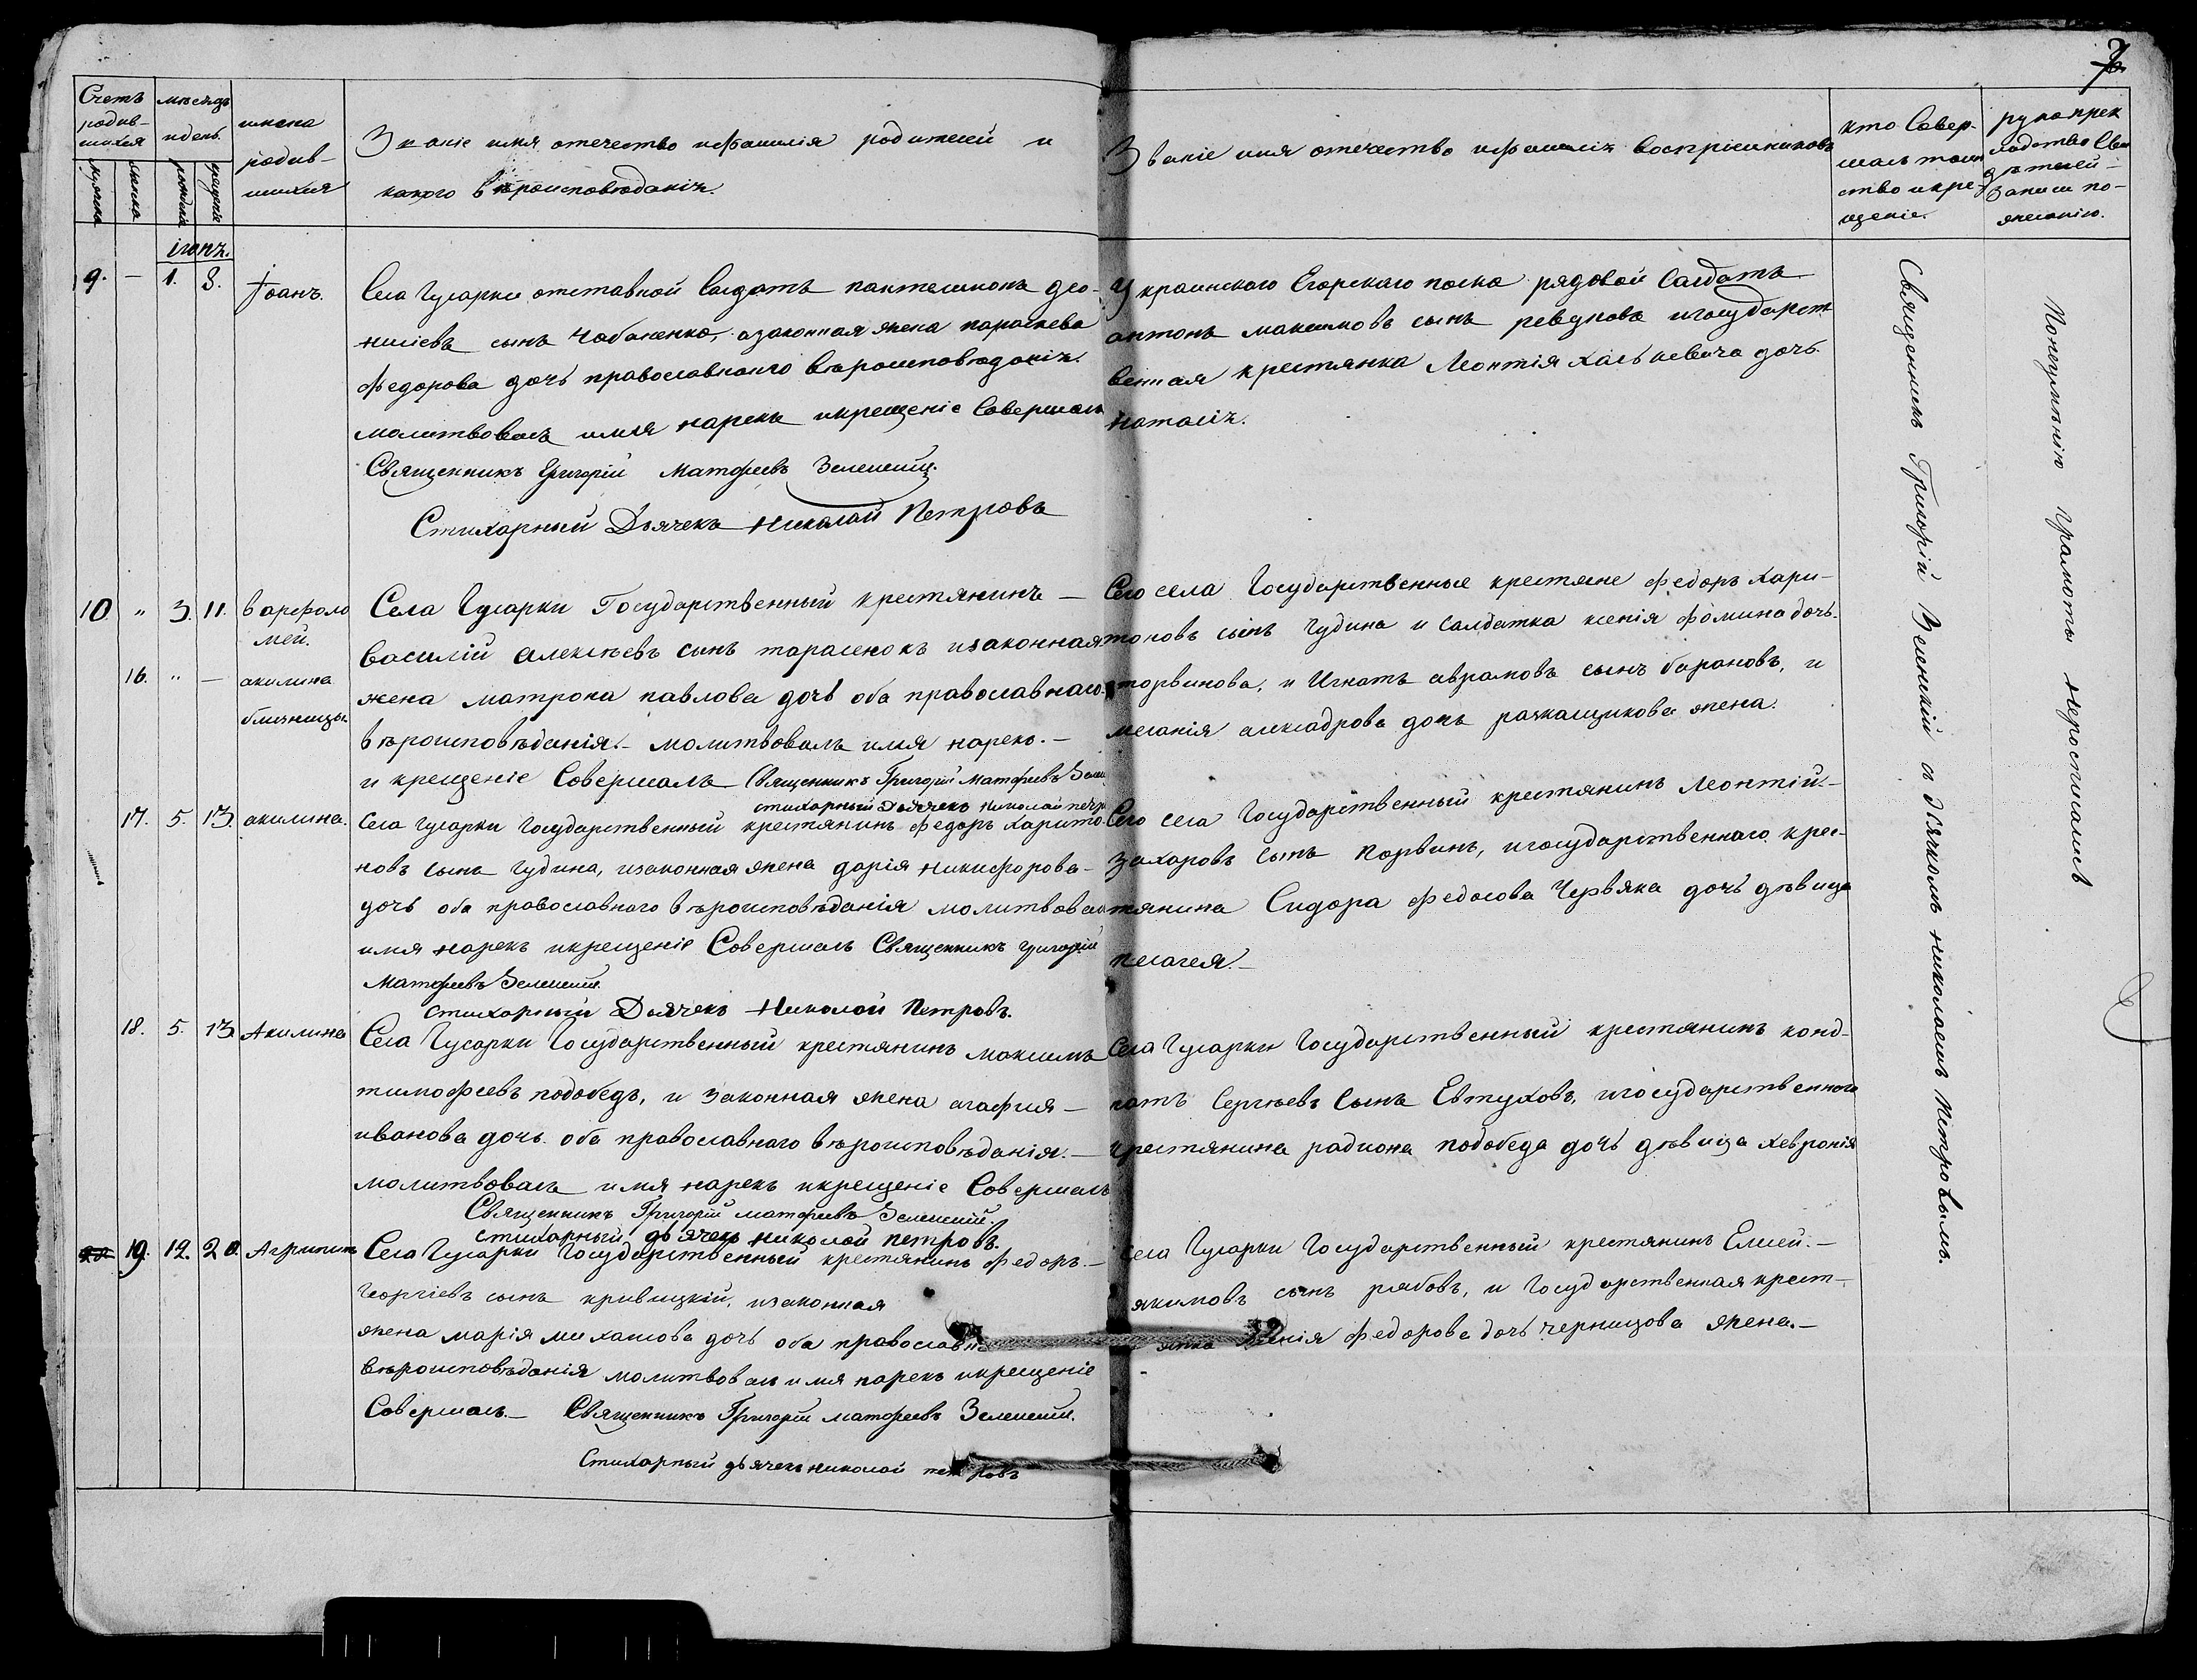 7
Счетъ родив-шихся
мѣсяцъ и день
имена родив-шихся
Званіе имя отечество ифамилія родителей и
какого вѣроисповѣданія.
Званіе имя отечество ифамилія воспріемниковъ
кто Совер-
шалъ таин
ство икре-
щеніе.
рукоприк
ладство сви
дѣтелей
записи по-
желанію.
мужеска
женска
рожденія
крещеніе
іюнь.
9. — 1. 8. Іоанъ.
Села Гусарки отставной Солдатъ пантелимонъ део-
нисіевъ сынъ Чабаненко, изаконная жена параскева
Федорова дочь православнаго вѣроисповѣданія.
молитвовалъ имя нарекъ икрещеніе Совершалъ
Священникъ Григорій Матфеевъ Зеленскій.
Стихарный Дьячекъ Николай Петровъ
Украинскаго Егорскаго полка рядовой Салдатъ
антонъ максимовъ сынъ ревуновъ игосударст
венная крестянка Леонтія дочь
наталія.
10. " 3. 11. варфоло
мей.
16. " — акилина
близницы.
Села Гусарки Государственный крестянинъ —
Василій алексѣевъ сынъ тарасенокъ изаконная
жена матрона павлова дочь оба православнаго
вѣроисповѣданія. — молитвовалъ имя нарекъ. —
и крещеніе Совершалъ Священникъ Григорій Матфеевъ Зелен
стихарный Дьячекъ николай петр
Сего села Государственные крестяне федоръ Хари-
тоновъ сынъ Чудина и Салдатка ксенія фомина дочь
торвинова, и Игнатъ аврамовъ сынъ барановъ, и
меланія алексадрова дочь жена.
17. 5. 13. акилина.
Села гусарки Государственный крестянинъ Федоръ Харито-
новъ сынъ чудина, изаконная жена дарія никифорова-
дочь оба православнаго вѣроисповѣданія молитвовалъ
имя нарекъ икрещеніе Совершалъ Священникъ Григорій
Матфеевъ Зеленскій
стихарный Дьячекъ Николай Петровъ.
Сего села Государственный крестянинъ Леонтій-
Захаровъ сынъ Корвинъ, игосударственнаго крес-
тянина Сидора Федосова Червяка дочь дѣвица
пелагея. —
18. 5. 13. Акилина
Села Гусарки Государственный крестянинъ максимъ
тимофеевъ подобедъ, и законная жена агафия —
иванова дочь оба православнаго вѣроисповѣданія. —
молитвовалъ имя нарекъ икрещеніе Совершалъ
Священникъ Григорій матфеевъ Зеленскій.
стихарный дьячекъ николай петровъ.
Села Гусарки Государственный крестянинъ конд-
ратъ Сергѣевъ Сынъ Евтуховъ, игосударственнаго
крестянина радиона подобеда дочь дѣвица хевронія
19. 12. 20. Агрипина
Села Гусарки Государственный крестянинъ Федоръ. —
Георгіевъ сынъ кривицкій, изаконная
жена марія михаилова дочь оба православн
вѣроисповѣданія молитвовалъ имя нарекъ икрещеніе
Совершалъ. — Священникъ Григорій матфеевъ Зеленскій.
Стихарный дьячекъ николай петровъ
Села Гусарки Государственный крестянинъ Елисей. —
якимовъ сынъ рябовъ, и Государственная крест-
янка Федорова дочь черницова жена. —
Священникъ Григорій Зеленскій съ дьячкомъ николаемъ петровымъ.
Понеумѣнію грамоты неросписались